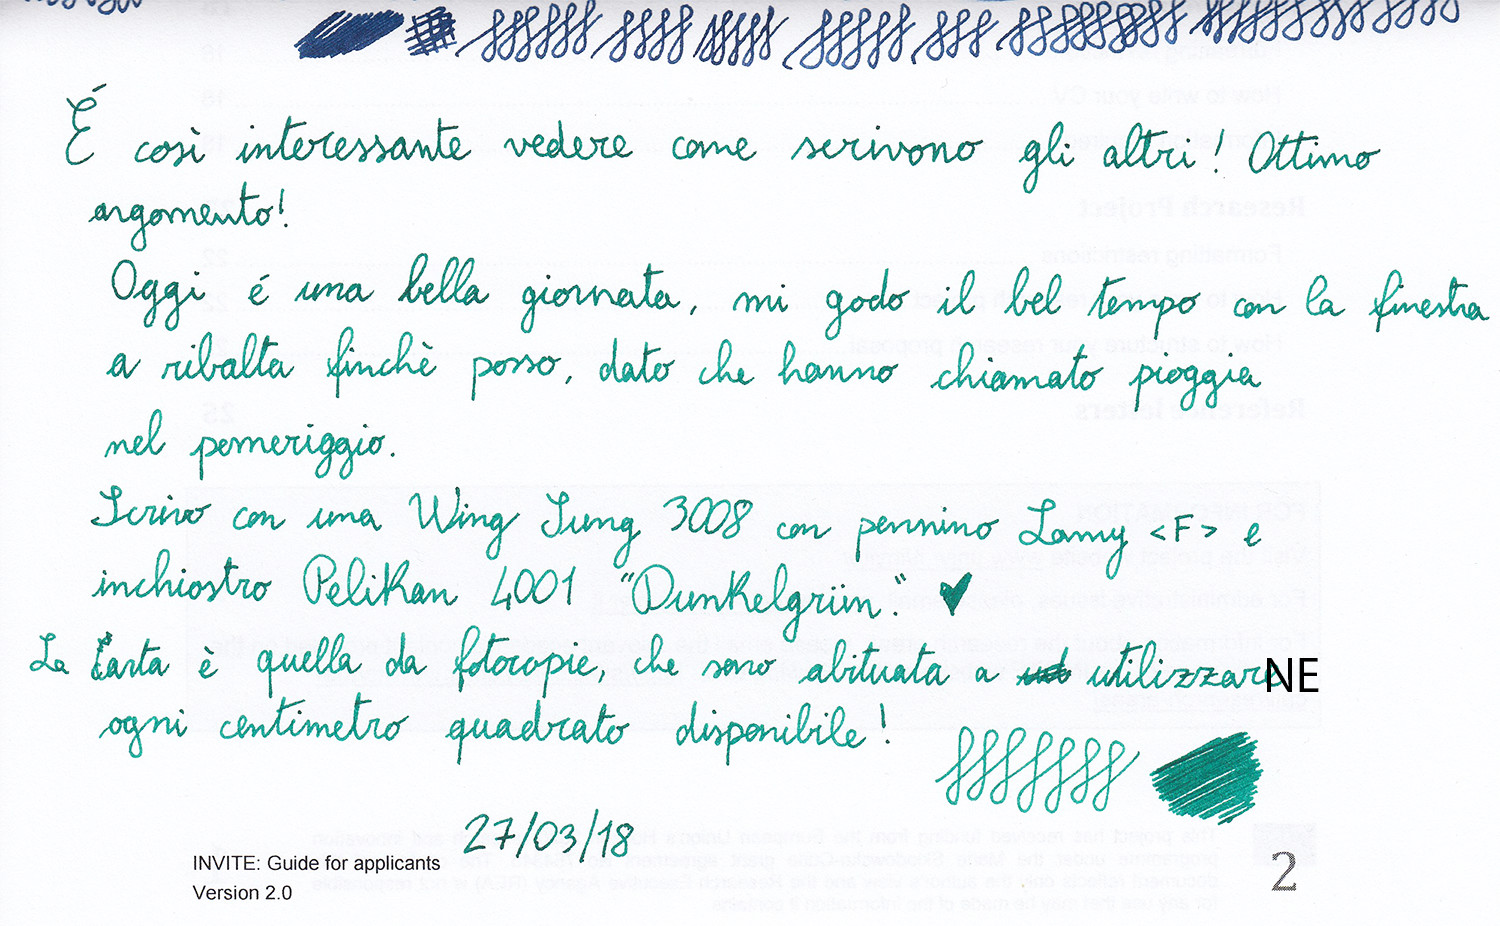 É così interessante vedere come scrivono gli altri! Ottimo
argomento!
Oggi é una bella giornata, mi godo il bel tempo con la finestra
a ribalta finchè posso, dato che hanno chiamato pioggia
nel pomeriggio.
Scrivo con una Wing Sung 3008 con pennino Lamy <F> e
inchiostro Pelikan 4001 "Dunkelgrün". ♥
La carta è quella da fotocopie, che sono abituata a utilizzarNE
ogni centimetro quadrato disponibile!
27/03/18
INVITE: Guide for applicants
Version 2.0
2